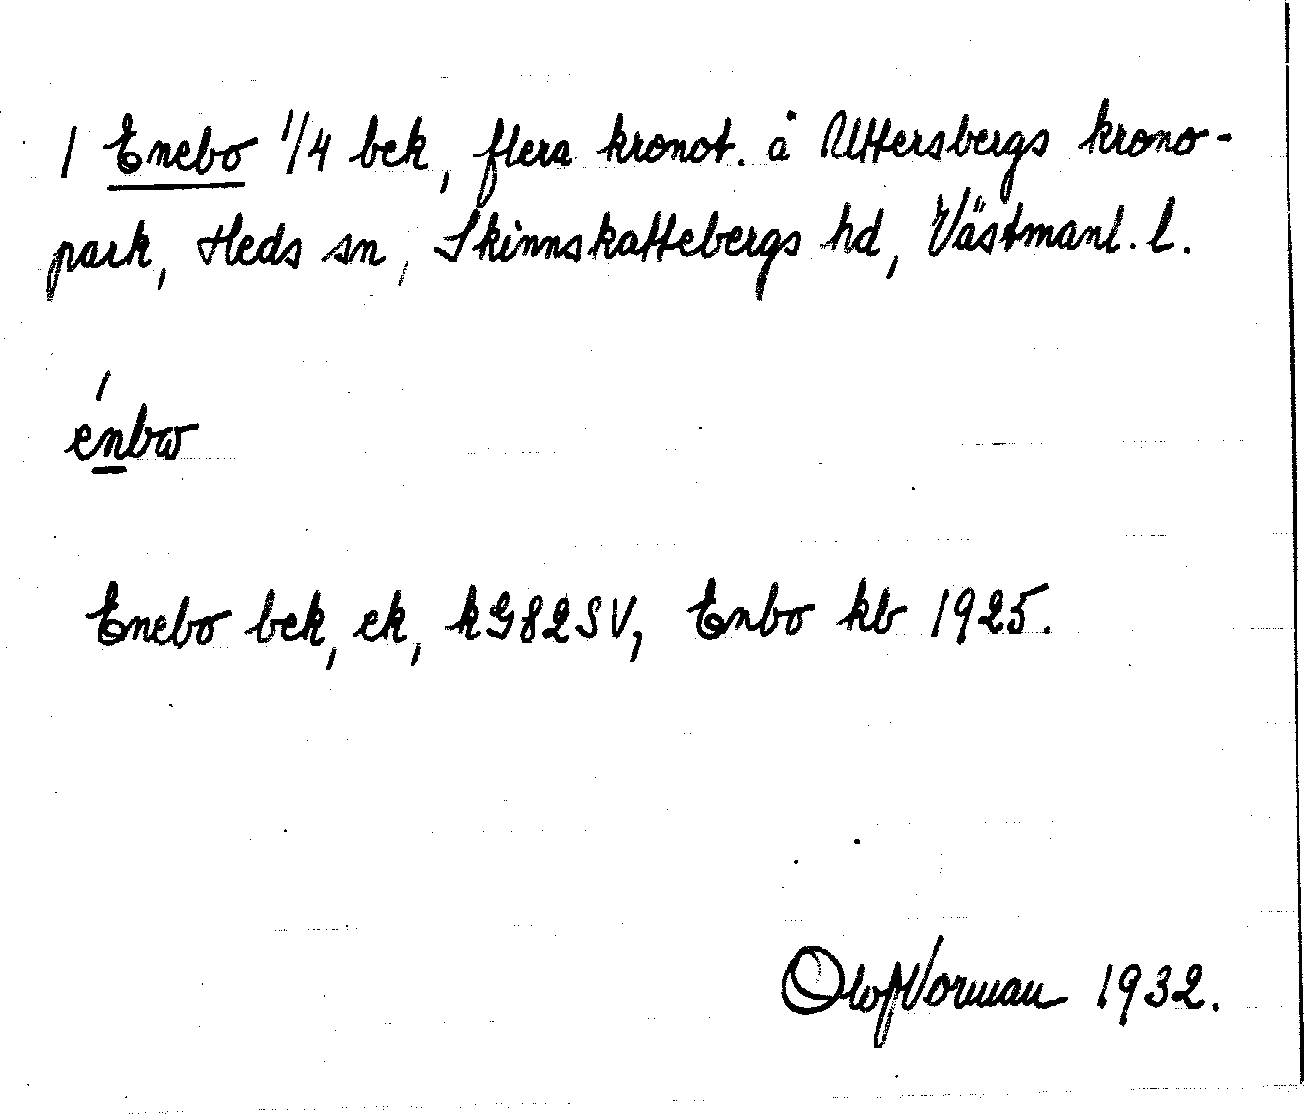 1 Enebo 1/4 bek, flera kronot. å Uttersbergs krono-
park, Heds sn, Skinnskattebergs hd, Västmanl. l.
énbω
Enebo bek, ek, kG82SV, Enbo kb 1925.
Olof Norman 1932.